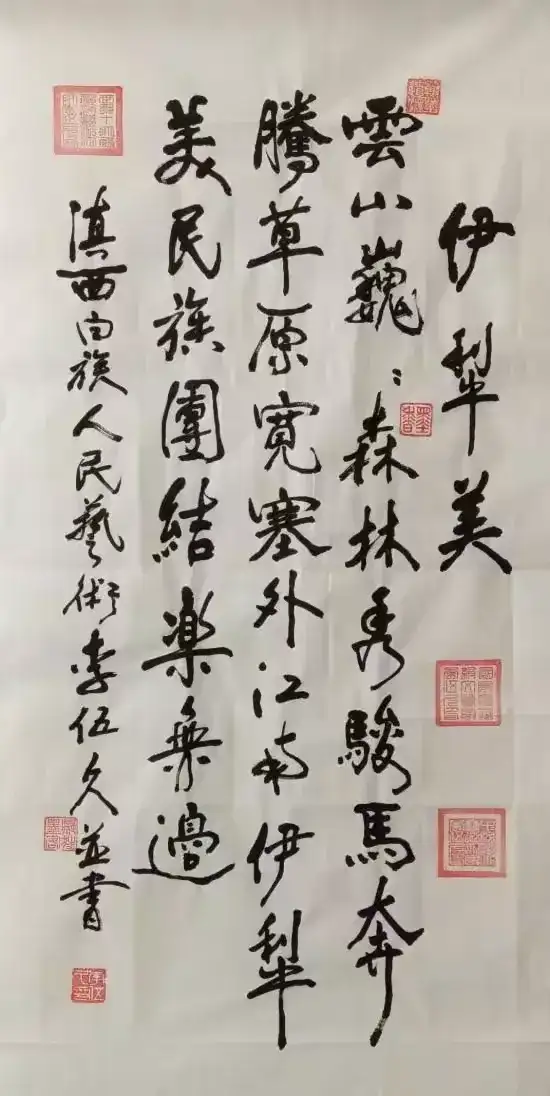 伊犁美
雲山巍：森林秀駿馬奔
騰草原寬塞外江南伊犁
美民族團結楽無邊
滇西白族人民藝術李伍久並書